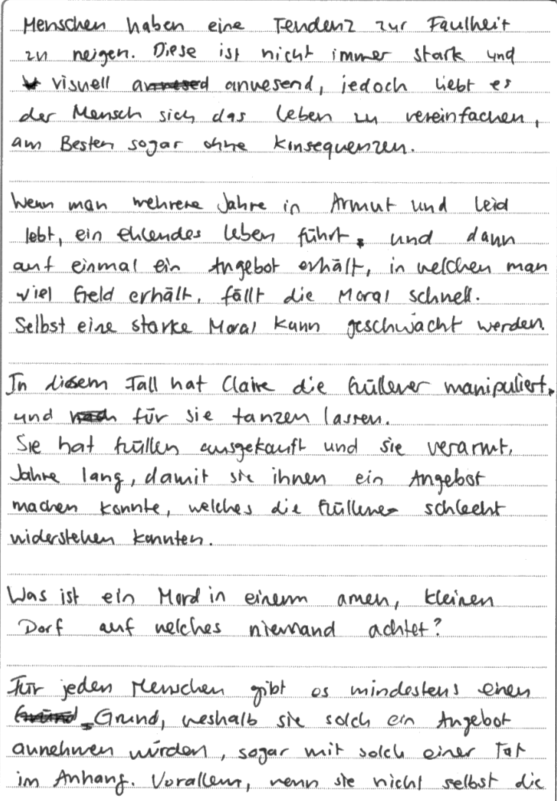 Menschen haben eine Tendenz zur Faulheit
zu neigen. Diese ist nicht immer stark und
visuell anwesend, jedoch liebt es
der Mensch sich das leben zu vereinfachen,
am Besten sogar ohne Kinsequenzen.
Wenn man mehrere Jahre in Armut und Leid
lebt, ein ehlendes leben führt, und dann
auf einmal ein Angebot erhält, in welchen man
viel Geld erhält, fällt die Moral schnell.
Selbst eine starke Moral kann geschwächt werden.
In diesem Fall hat Claire die Güllener manipuliert,
und für sie tanzen lassen.
Sie hat Güllen ausgekauft und sie verarmt.
Jahre lang, damit sie ihnen ein Angebot
machen konnte, welches die Güllener schlecht
widerstehen konnten.
Was ist ein Mord in einem amen, kleinen
Dorf auf welches niemand achtet?
Für jeden Menschen gibt es mindestens einen
Grund, weshalb sie solch ein Angebot
annehmen würden, sogar mit solch einer Tat
im Anhang. Vorallem, wenn sie nicht selbst die